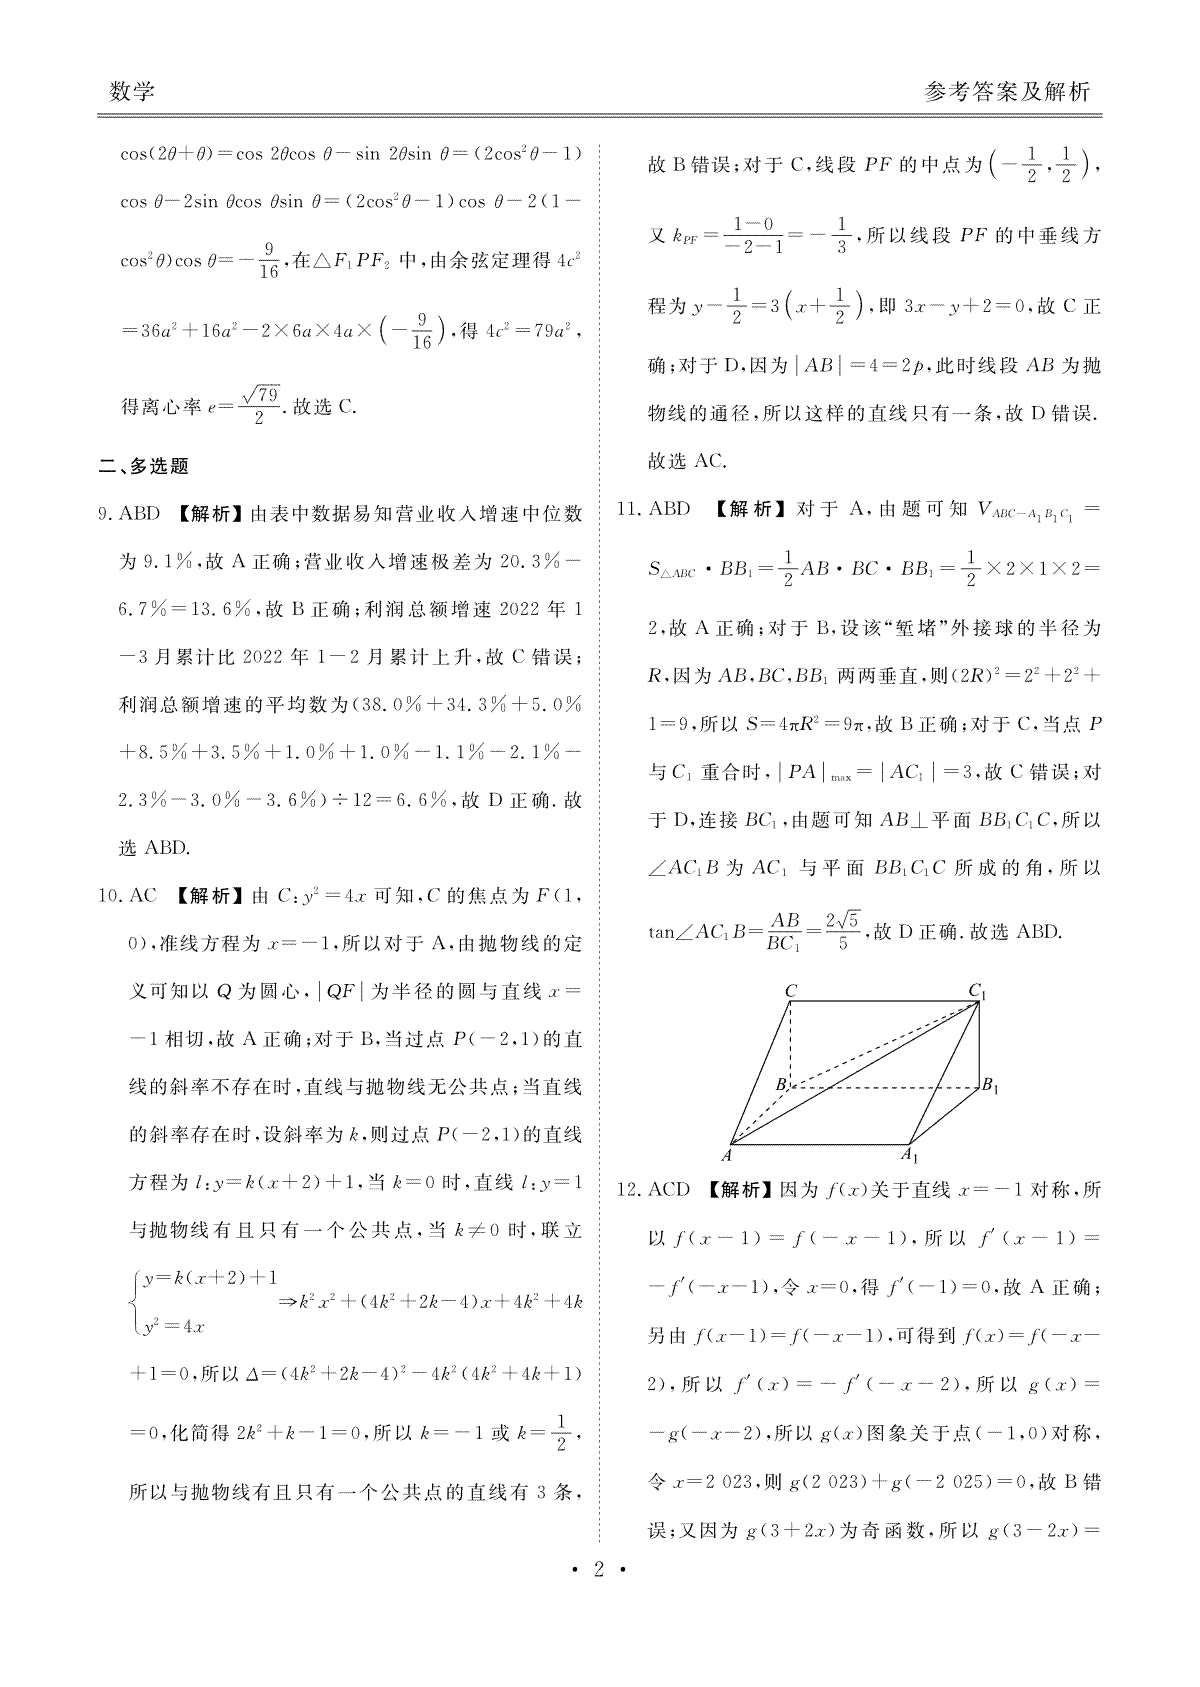 数学
参考答案及解析
cos(2θ+θ)=cos 2θcos θ-sin 2θsin θ=(2cos²θ-1)
cos θ-2sin θcos θsin θ=(2cos²θ-1)cos θ-2(1-
cos²θ)cos θ=-9/16,在△F₁PF₂ 中,由余弦定理得 4c²
=36a²+16a²-2×6a×4a×(-9/16),得 4c²=79a²,
得离心率 e=√79/2.故选 C.
二、多选题
9. ABD 【解析】由表中数据易知营业收入增速中位数
为 9.1%,故 A 正确;营业收入增速极差为 20.3%-
6.7%=13.6%,故 B 正确;利润总额增速 2022 年 1
-3 月累计比 2022 年 1-2 月累计上升,故 C 错误;
利润总额增速的平均数为(38.0%+34.3%+5.0%
+8.5%+3.5%+1.0%+1.0%-1.1%-2.1%-
2.3%-3.0%-3.6%)÷12=6.6%,故 D 正确.故
选 ABD.
10. AC 【解析】由 C:y²=4x 可知,C 的焦点为 F(1,
0),准线方程为 x=-1,所以对于 A,由抛物线的定
义可知以 Q 为圆心,|QF|为半径的圆与直线 x=
-1 相切,故 A 正确;对于 B,当过点 P(-2,1)的直
线的斜率不存在时,直线与抛物线无公共点;当直线
的斜率存在时,设斜率为 k,则过点 P(-2,1)的直线
方程为 l:y=k(x+2)+1,当 k=0 时,直线 l:y=1
与抛物线有且只有一个公共点,当 k≠0 时,联立
{y=k(x+2)+1
y²=4x ⇒k²x²+(4k²+2k-4)x+4k²+4k
+1=0,所以 Δ=(4k²+2k-4)²-4k²(4k²+4k+1)
=0,化简得 2k²+k-1=0,所以 k=-1 或 k=1/2,
所以与抛物线有且只有一个公共点的直线有 3 条,
故 B 错误;对于 C,线段 PF 的中点为(-1/2,1/2),
又 k_PF=(1-0)/(-2-1)=-1/3,所以线段 PF 的中垂线方
程为 y-1/2=3(x+1/2),即 3x-y+2=0,故 C 正
确;对于 D,因为|AB|=4=2p,此时线段 AB 为抛
物线的通径,所以这样的直线只有一条,故 D 错误.
故选 AC.
11. ABD 【解析】对于 A,由题可知 V_ABC-A₁B₁C₁=
S_△ABC·BB₁=1/2AB·BC·BB₁=1/2×2×1×2=
2,故 A 正确;对于 B,设该“堑堵”外接球的半径为
R,因为 AB,BC,BB₁ 两两垂直,则(2R)²=2²+2²+
1=9,所以 S=4πR²=9π,故 B 正确;对于 C,当点 P
与 C₁ 重合时,|PA|max=|AC₁|=3,故 C 错误;对
于 D,连接 BC₁,由题可知 AB⊥平面 BB₁C₁C,所以
∠AC₁B 为 AC₁ 与平面 BB₁C₁C 所成的角,所以
tan∠AC₁B=AB/BC₁=2√5/5,故 D 正确.故选 ABD.
C C₁
B B₁
A A₁
12. ACD 【解析】因为 f(x)关于直线 x=-1 对称,所
以 f(x-1)=f(-x-1),所以 f′(x-1)=
-f′(-x-1),令 x=0,得 f′(-1)=0,故 A 正确;
另由 f(x-1)=f(-x-1),可得到 f(x)=f(-x-
2),所以 f′(x)=-f′(-x-2),所以 g(x)=
-g(-x-2),所以 g(x)图象关于点(-1,0)对称,
令 x=2 023,则 g(2 023)+g(-2 025)=0,故 B 错
误;又因为 g(3+2x)为奇函数,所以 g(3-2x)=
· 2 ·